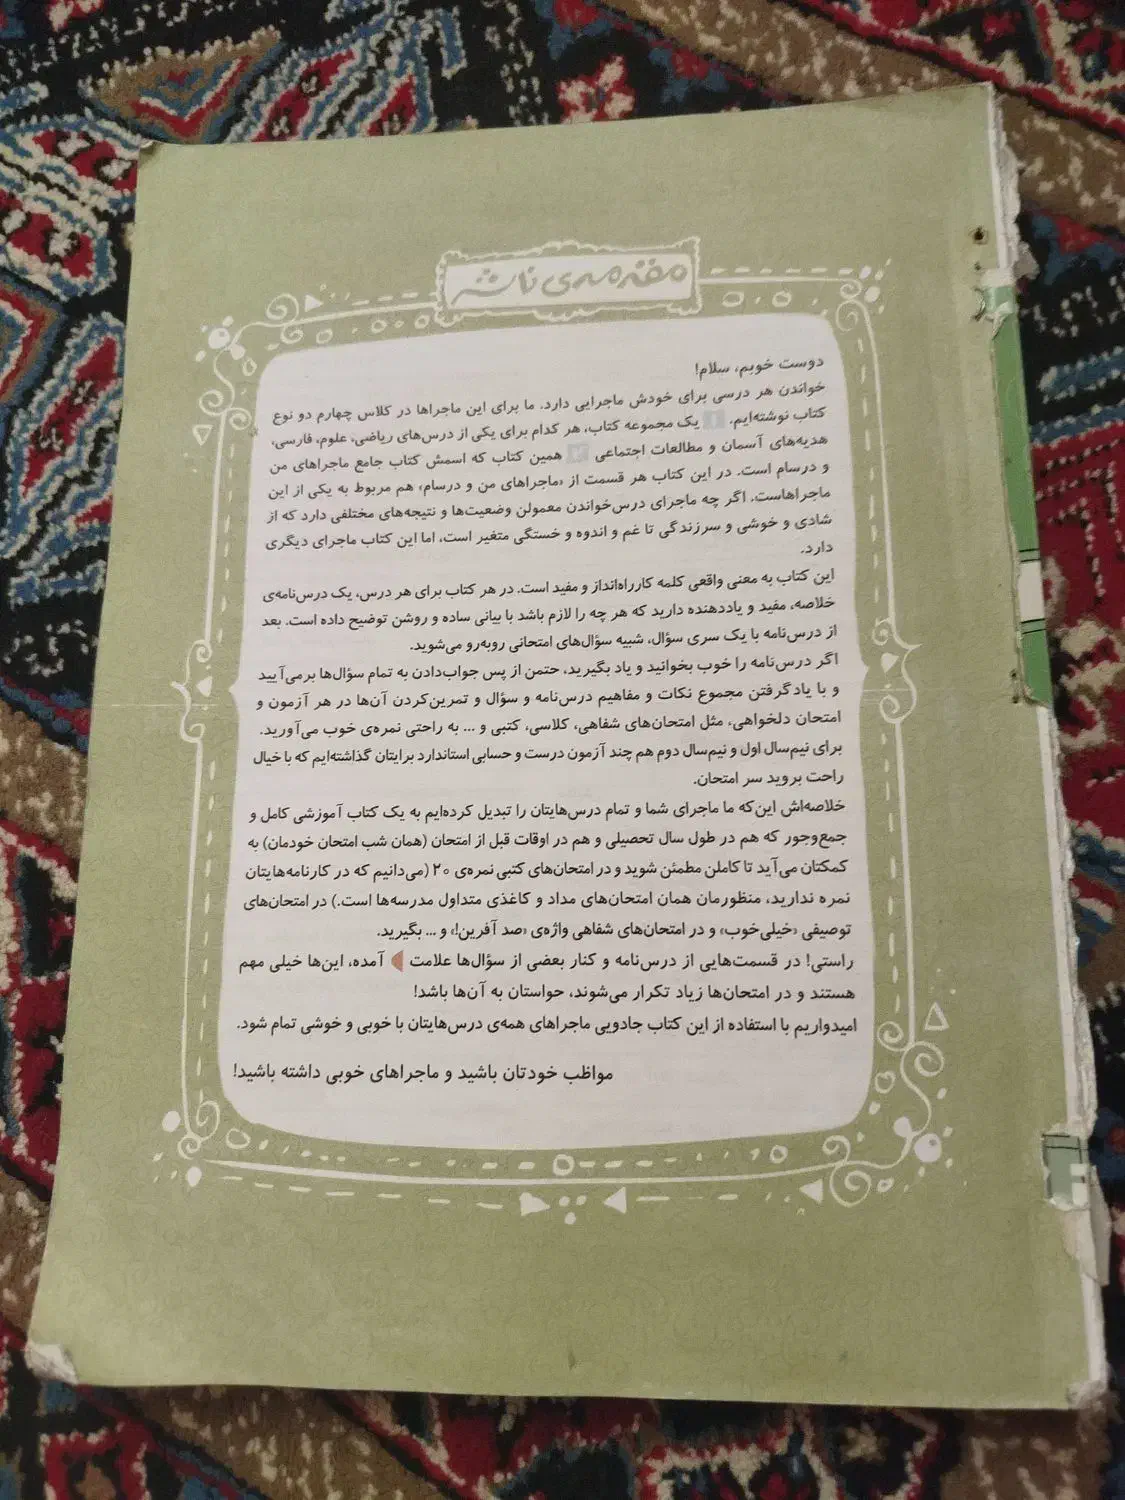 مقدمه‌ی ناشر
دوست خوبم، سلام!
خواندن هر درسی برای خودش ماجرایی دارد. ما برای این ماجراها در کلاس چهارم دو نوع
کتاب نوشته‌ایم. ۱ یک مجموعه کتاب، هر کدام برای یکی از درس‌های ریاضی، علوم، فارسی،
هدیه‌های آسمان و مطالعات اجتماعی ۲ همین کتاب که اسمش کتاب جامع ماجراهای من
و درسام است. در این کتاب هر قسمت از «ماجراهای من و درسام» هم مربوط به یکی از این
ماجراهاست. اگر چه ماجرای درس‌خواندن معمولن وضعیت‌ها و نتیجه‌های مختلفی دارد که از
شادی و خوشی و سرزندگی تا غم و اندوه و خستگی متغیر است، اما این کتاب ماجرای دیگری
دارد.
این کتاب به معنی واقعی کلمه کارراه‌انداز و مفید است. در هر کتاب برای هر درس، یک درس‌نامه‌ی
خلاصه، مفید و یاددهنده دارید که هر چه را لازم باشد با بیانی ساده و روشن توضیح داده است. بعد
از درس‌نامه با یک سری سؤال، شبیه سؤال‌های امتحانی روبه‌رو می‌شوید.
اگر درس‌نامه را خوب بخوانید و یاد بگیرید، حتمن از پس جواب‌دادن به تمام سؤال‌ها برمی‌آیید
و با یادگرفتن مجموع نکات و مفاهیم درس‌نامه و سؤال و تمرین‌کردن آن‌ها در هر آزمون و
امتحان دلخواهی، مثل امتحان‌های شفاهی، کلاسی، کتبی و ... به راحتی نمره‌ی خوب می‌آورید.
برای نیم‌سال اول و نیم‌سال دوم هم چند آزمون درست و حسابی استاندارد برایتان گذاشته‌ایم که با خیال
راحت بروید سر امتحان.
خلاصه‌اش این‌که ما ماجرای شما و تمام درس‌هایتان را تبدیل کرده‌ایم به یک کتاب آموزشی کامل و
جمع‌وجور که هم در طول سال تحصیلی و هم در اوقات قبل از امتحان (همان شب امتحان خودمان) به
کمکتان می‌آید تا کاملن مطمئن شوید و در امتحان‌های کتبی نمره‌ی ۲۰ (می‌دانیم که در کارنامه‌هایتان
نمره ندارید، منظورمان همان امتحان‌های مداد و کاغذی متداول مدرسه‌ها است.) در امتحان‌های
توصیفی «خیلی‌خوب» و در امتحان‌های شفاهی واژه‌ی «صد آفرین!» و ... بگیرید.
راستی! در قسمت‌هایی از درس‌نامه و کنار بعضی از سؤال‌ها علامت آمده، این‌ها خیلی مهم
هستند و در امتحان‌ها زیاد تکرار می‌شوند، حواستان به آن‌ها باشد!
امیدواریم با استفاده از این کتاب جادویی ماجراهای همه‌ی درس‌هایتان با خوبی و خوشی تمام شود.
مواظب خودتان باشید و ماجراهای خوبی داشته باشید!